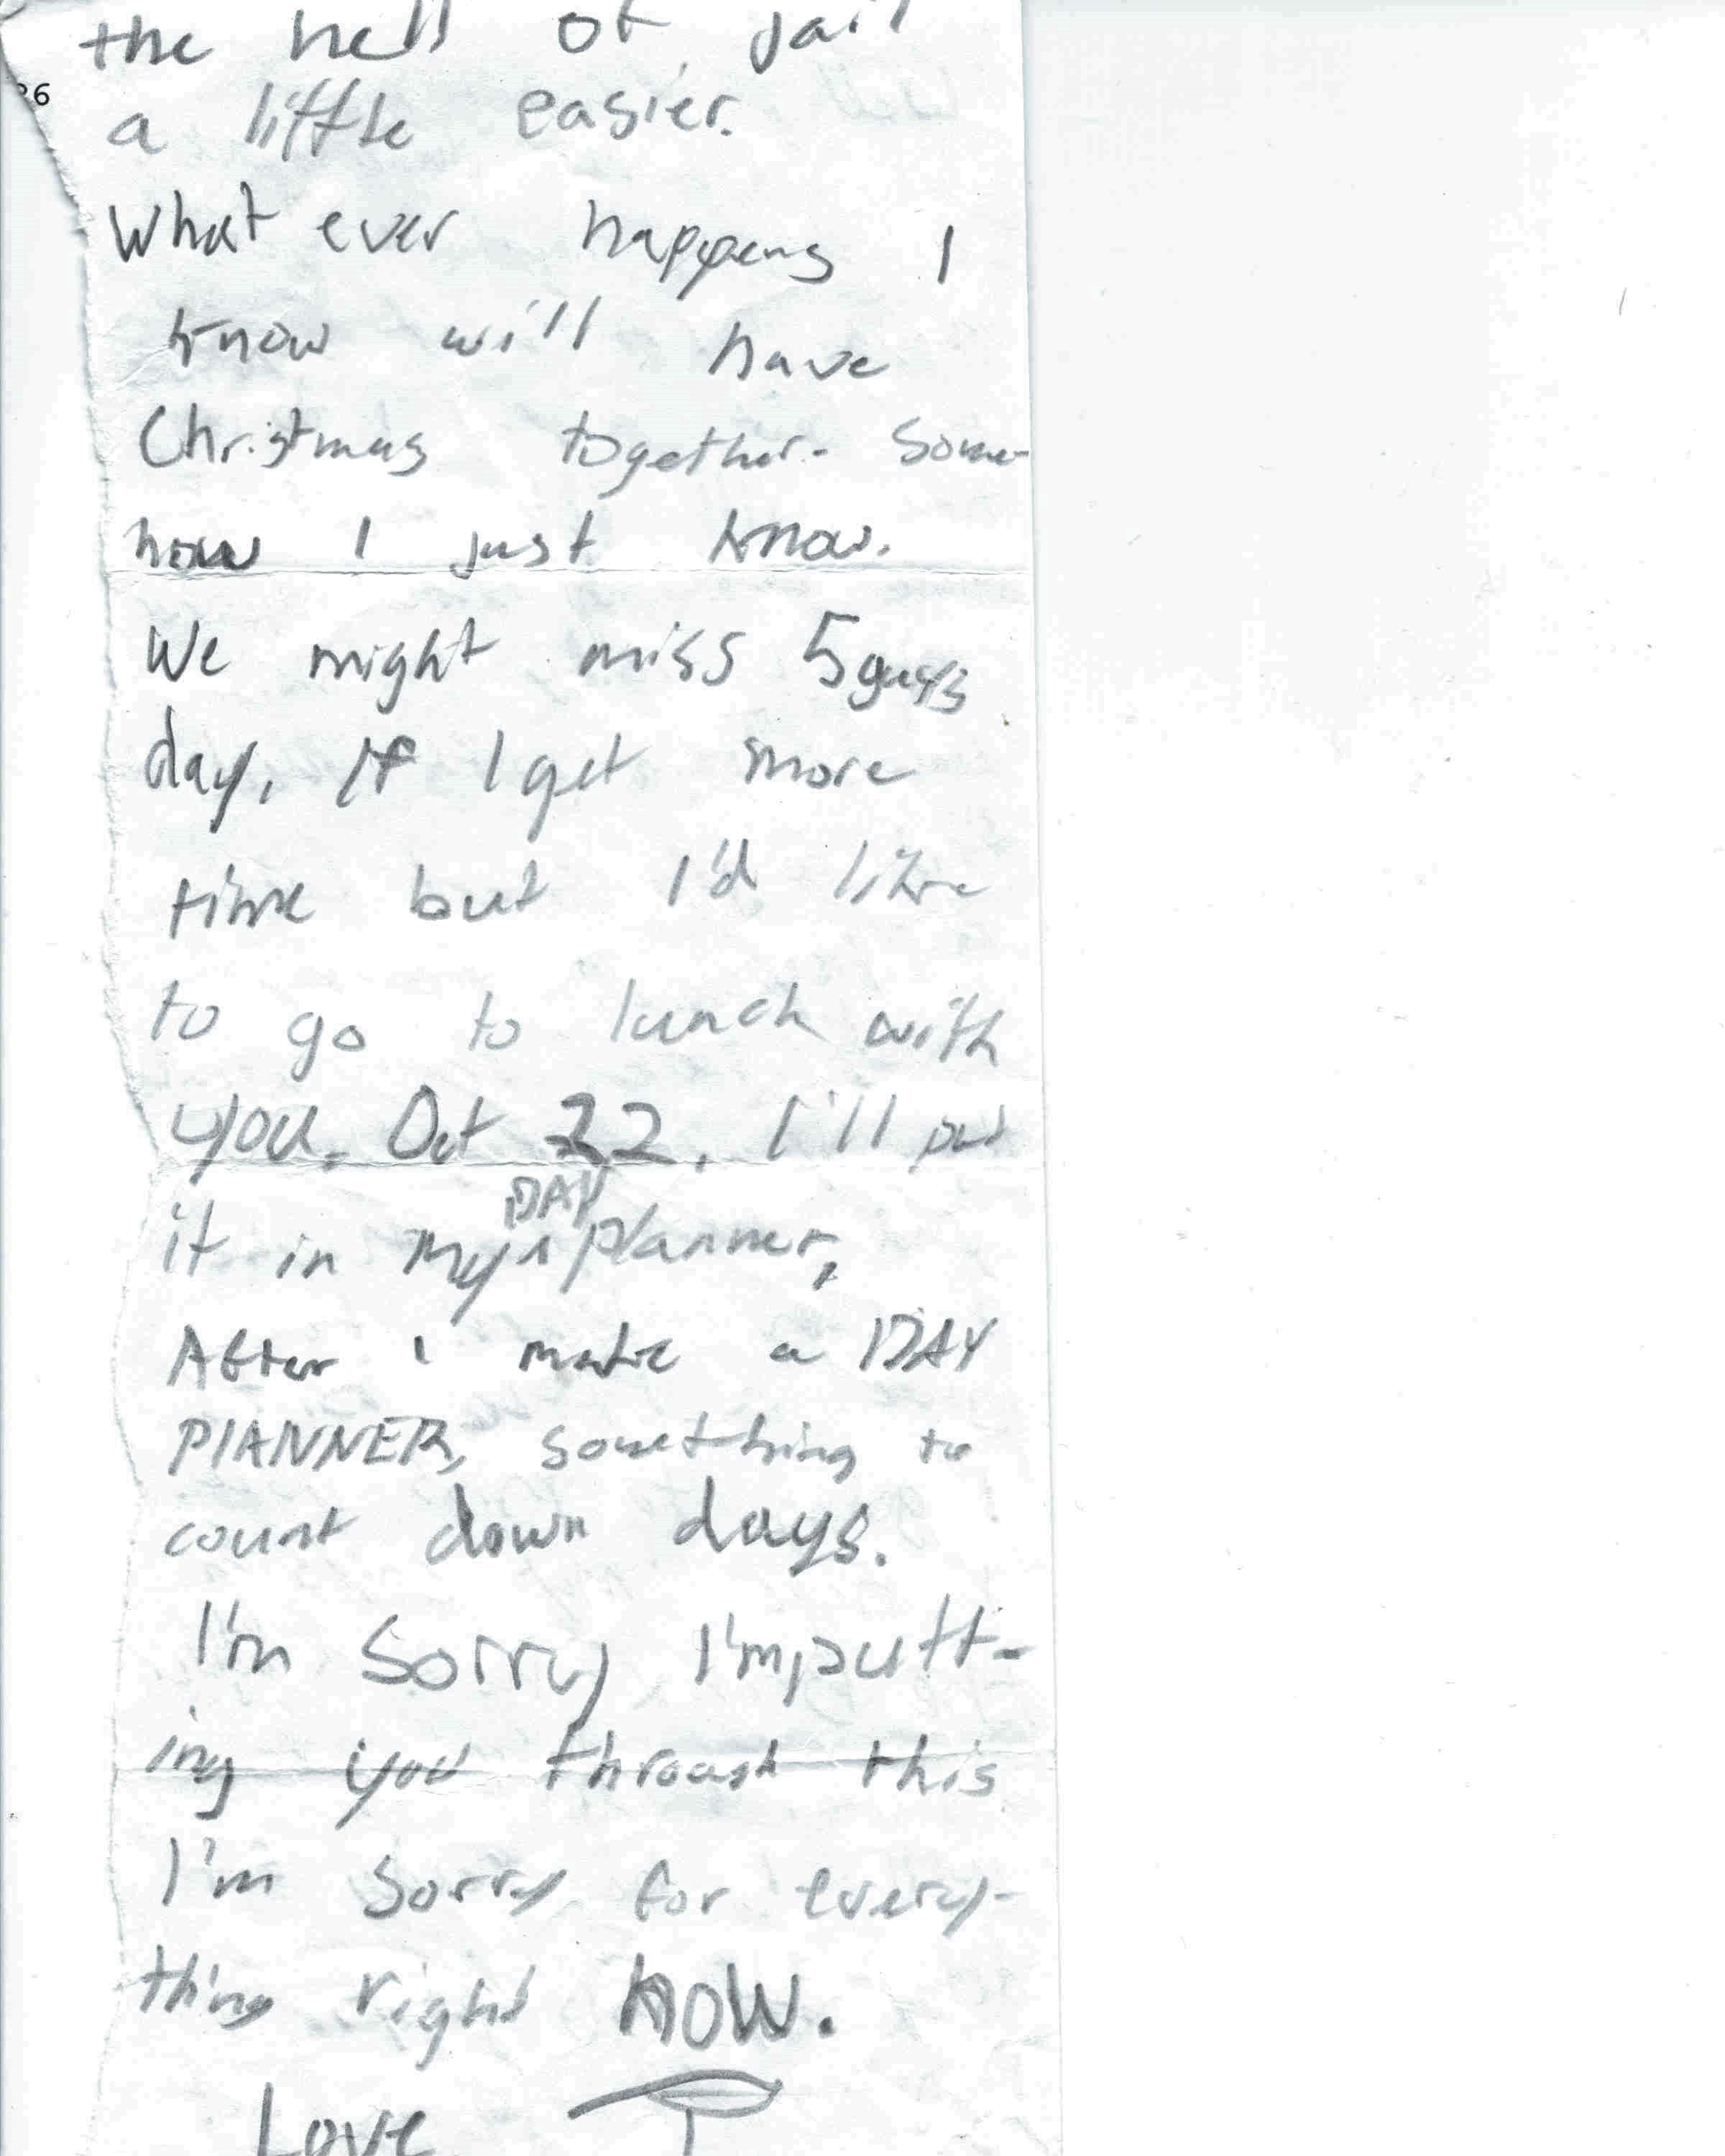 the hell of jail
26
a little easier.
What ever happens I
know will have
Christmas together. Some-
how I just know.
We might miss 5guys
day, If I get more
time but I'd like
to go to lunch with
you. Oct 22, I'll put
DAY
it in my ^ planner,
After i make a DAY
PlANNER, something to
count down days.
I'm Sorry I'm putt-
ing you through this
I'm sorry for every-
thing right NOW.
Love T